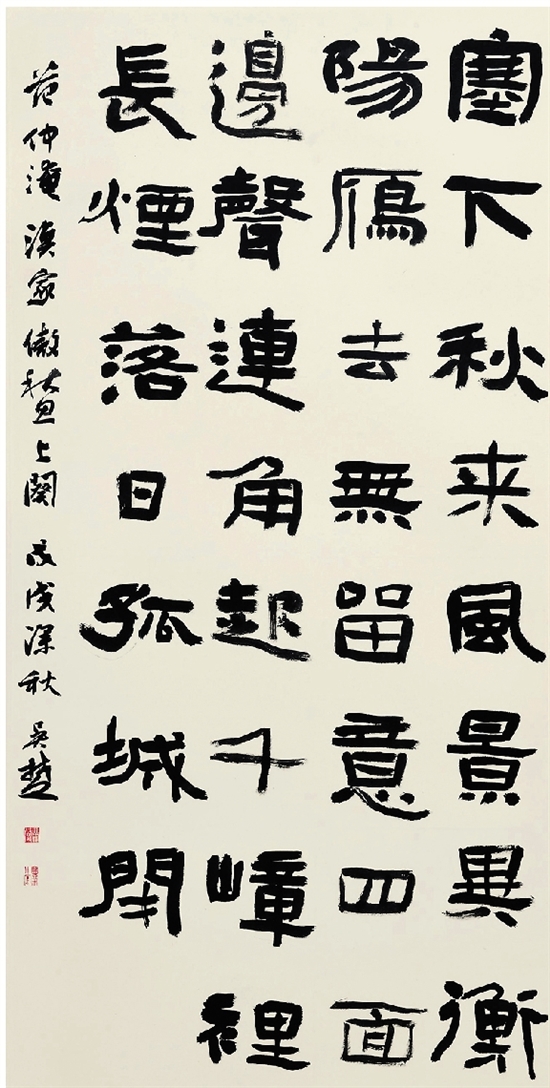 塞下秋来風景異衡
陽鴈去無留意四面
邊聲連角起千嶂裡
長煙落日孤城閉
范仲淹漁家傲秋思上闋 戊戌深秋 吴楚